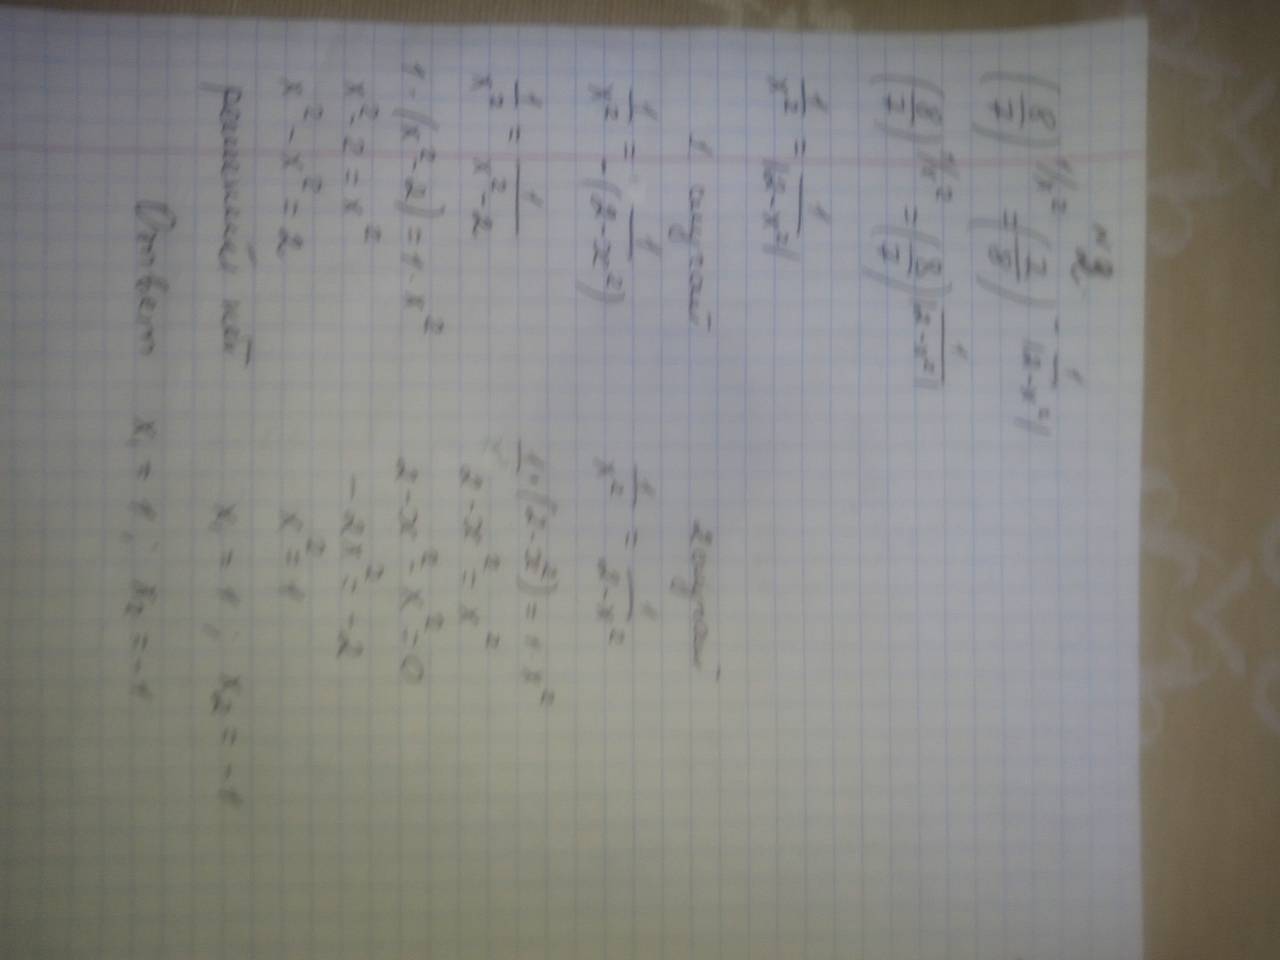 №3
(8/7)^{1/x²} = (7/8)^{-1/|2-x²|}
(8/7)^{1/x²} = (8/7)^{1/|2-x²|}
1/x² = 1/|2-x²|
1 случай
1/x² = 1/-(2-x²)
1/x² = 1/x²-2
1·(x²-2) = 1·x²
x²-2 = x²
x²-x² = 2
решений нет
2 случай
1/x² = 1/2-x²
1·(2-x²) = 1·x²
2-x² = x²
2-x²-x² = 0
-2x² = -2
x² = 1
x₁ = 1; x₂ = -1
Ответ x₁ = 1; x₂ = -1